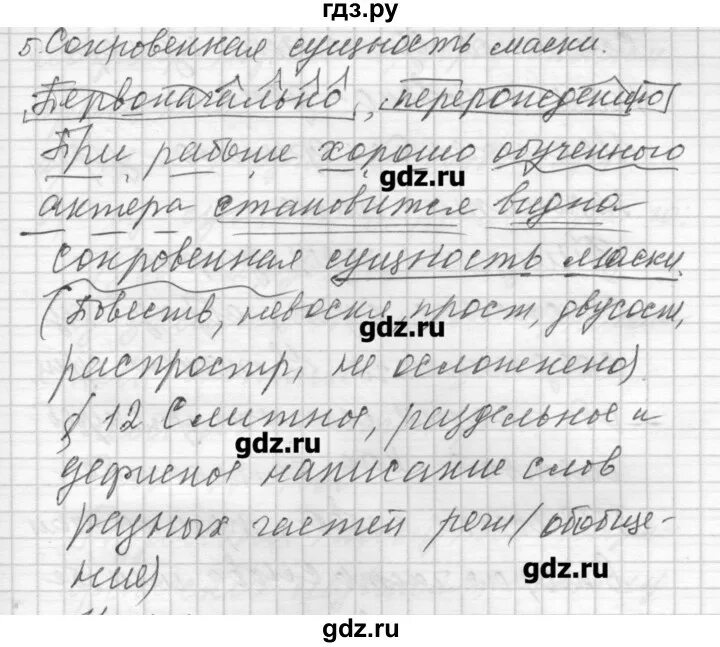 гдз.ру
5. Сокровенная сущность маски.
Первоначально, перерождению
При работе хорошо обученного
gdz.ru
актера становится видна
сокровенная сущность маски.
(Повеств, невоскл, прост, двусост,
gdz.ru
распростр, не осложнено)
§ 12 Слитное, раздельное и
gdz.ru
дефисное написание слов
разных частей речи (обобще-
ние)
gdz.ru
gdz.ru